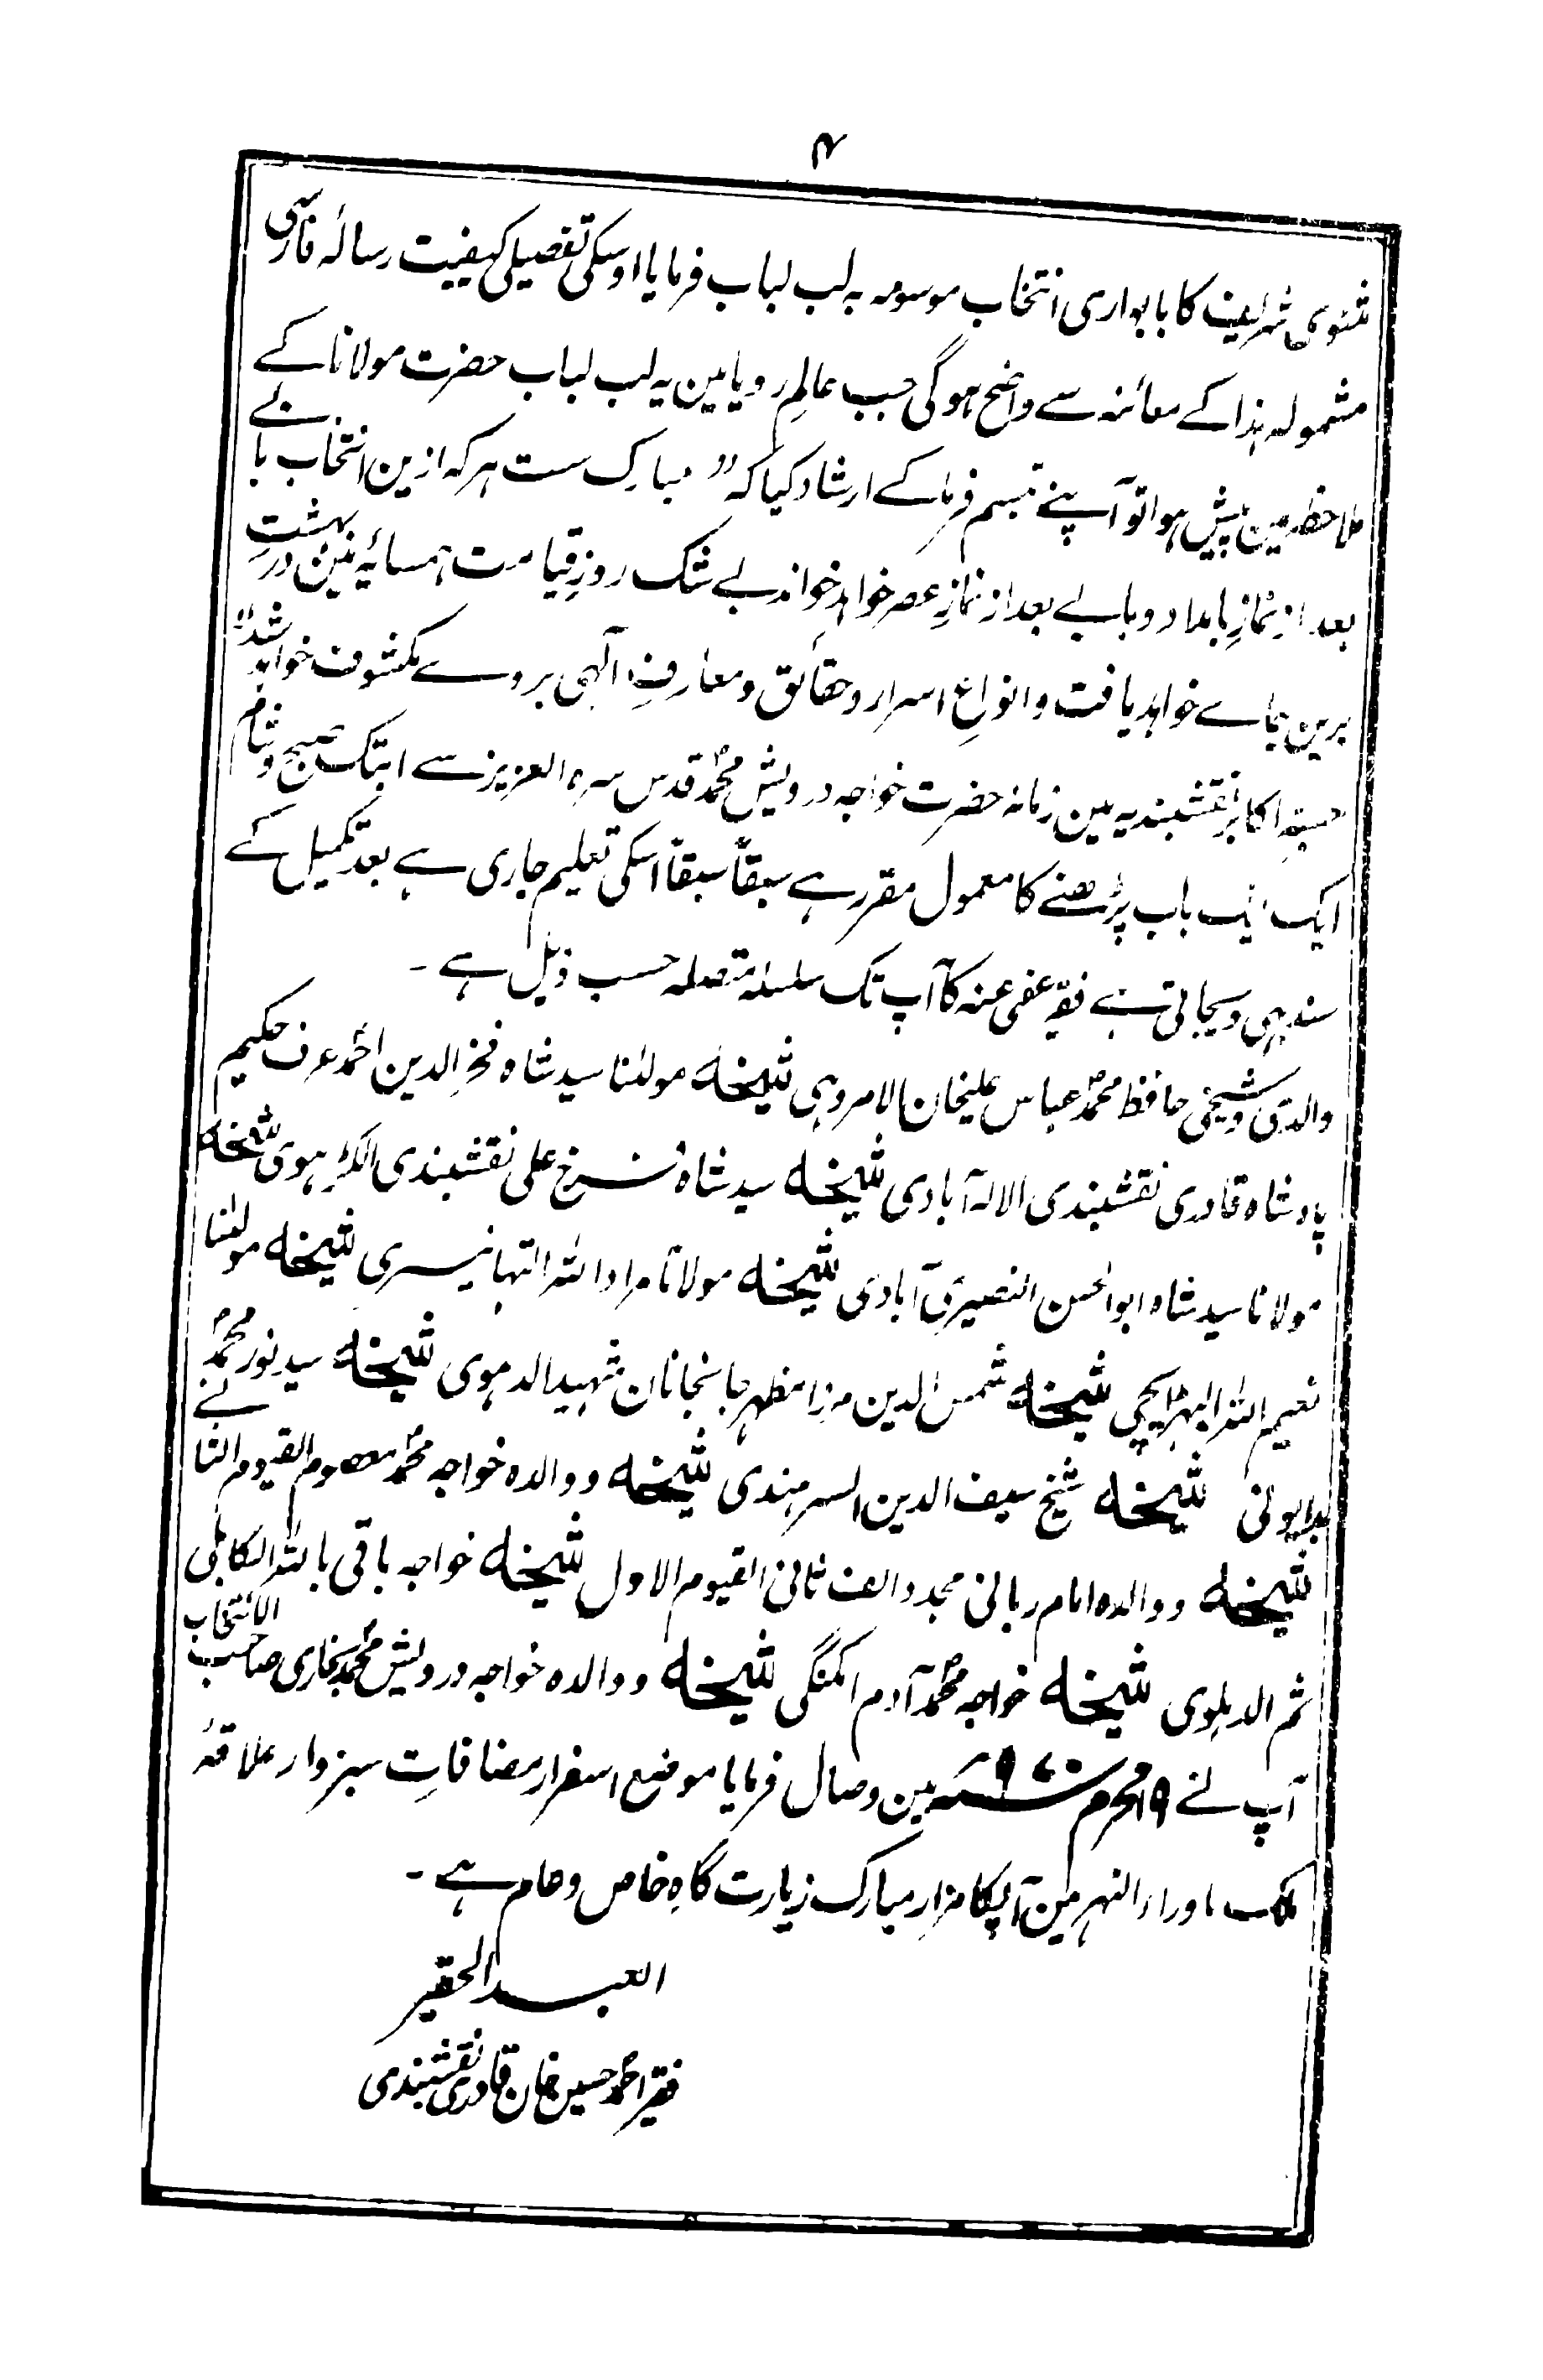 ۴
مثنوی شریف کا بابواری انتخاب موسومہ بہ لب لباب فرمایا اوسکی تفصیلی کیفیت رسالۂ فارسی
مشمولہ ہذا کے معائنہ سے واضح ہوگی جب عالمِ رویا مین یہ لب لباب حضرت مولانا کے
ملاحظہ مین پیش ہوا تو آپنے تبسم فرما کے ارشاد کیا کہ ”مبارک ست ہر کہ ازین انتخاب بابے
بعد از نمازِ بامداد و بابے بعد از نمازِ عصر خواہد خواند بے شک روزِ قیامت ہمسایۂ من در بہشتِ
برین جاے خواہد یافت و انواعِ اسرار و حقائق و معارفِ آلٰہی بروے مکشوف خواہد شد“
حسبہٖ اکابر نقشبندیہ مین زمانہ حضرت خواجہ درویش محمدؐ قدس سرہ العزیز سے ابتک صبح و شام
ایک ایک باب پڑھنے کا معمول مقرر ہے سبقاً سبقاً اسکی تعلیم جاری ہے بعد تکمیل کے
سند بہی دیجاتی ہے فقیر عفی عنہ کا آپ تک سلسلہ متصلہ حسب ذیل ہے ۔
والدی و شیخی حافظ محمدؐ عباس علیخان الامروہی شیخہ مولٰنا سید شاہ فخر الدین احمدؐ عرف حکیم
پادشاہ قادری نقشبندی الالہ آبادی شیخہ سید شاہ فرخ علی نقشبندی الکڑاہوی شیخہ
مولانا سید شاہ ابوالحسن النصیری آبادی شیخہ مولانا مراد اللہ التہانیسری شیخہ مولٰنا
نعیم اللہ البہڑایچی شیخہ شمس الدین مرزا مظہر جانجانان شہید الدہلوی شیخہ سید نور محمدؐ
بدایونی شیخہ شیخ سیف الدین السرہندی شیخہ و والدہ خواجہ محمدؐ معصوم القیوم الثانے
شیخہ و والدہ امام ربانی مجدد الف ثانی القیوم الاول شیخہ خواجہ باقی باللہ الکابلی
ثم الدہلوی شیخہ خواجہ محمدؐ آدم امکنگی شیخہ و والدہ خواجہ درویش محمدؐ بخاری صاحب الانتخاب
آپ نے ۱۹ محرم ۹۷۰؁ھ مین وصال فرمایا موضع اسفرار مضافاتِ سبزوار علاقۂ
ملک ماوراء النہر مین آپکا مزار مبارک زیارت گاہِ خاص و عام ہے ۔
العبد الحقیر
فقیر احمدؐ حسین خان قادری نقشبندی